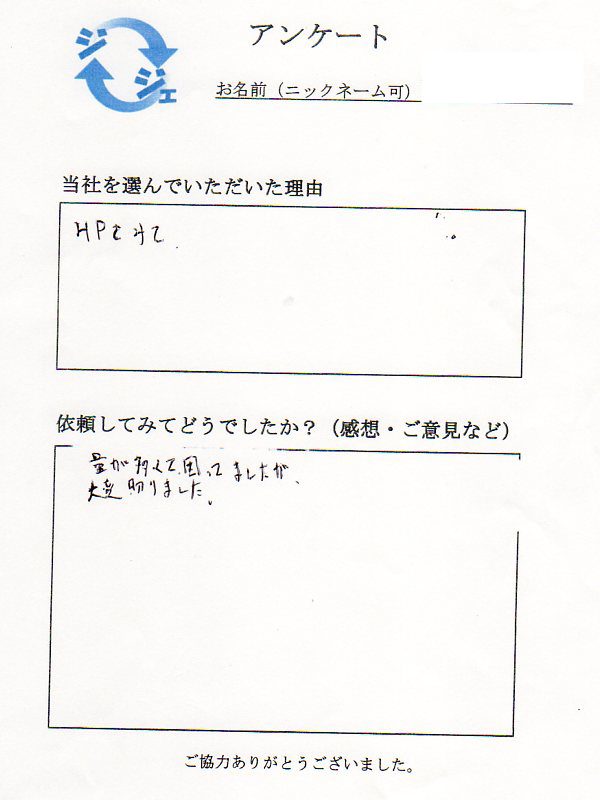 ジ
ジェ
アンケート
お名前（ニックネーム可）
当社を選んでいただいた理由
HPをみて
依頼してみてどうでしたか？（感想・ご意見など）
量が多くて困ってましたが、
大変助りました。
ご協力ありがとうございました。